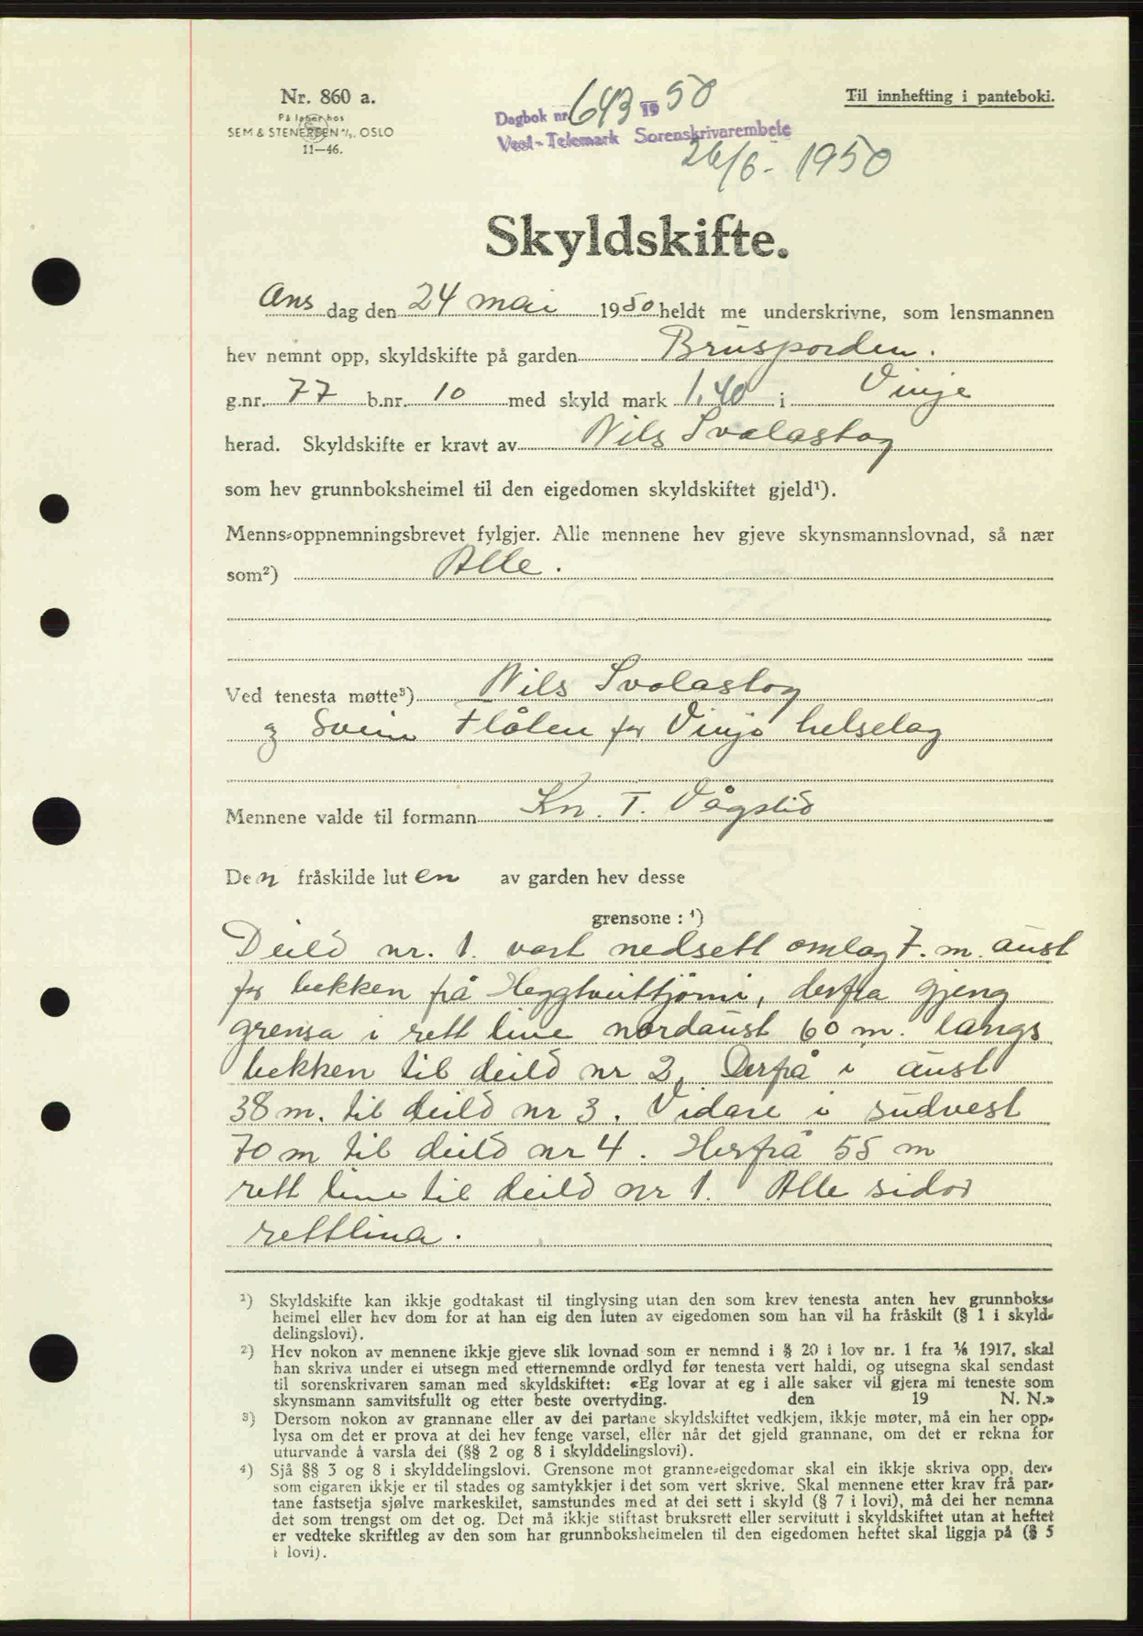 Nr. 860 a.
På lager hos
SEM & STENERSEN A/S, OSLO
11—46.
Dagbok nr. 643 1950
Vest-Telemark Sorenskrivarembete
26/6- 1950
Til innhefting i panteboki.
Skyldskifte.
Ons dag den 24 mai 1950 heldt me underskrivne, som lensmannen
hev nemnt opp, skyldskifte på garden Brusporden.
g.nr. 77 b.nr. 10 med skyld mark 1.40 i Vinje
herad. Skyldskifte er kravt av Nils Svalastog
som hev grunnboksheimel til den eigedomen skyldskiftet gjeld¹).
Menns-oppnemningsbrevet fylgjer. Alle mennene hev gjeve skynsmannslovnad, så nær
som²) Alle.
Ved tenesta møtte³) Nils Svolastog
og Svein Flåten for Vinje helselag
Mennene valde til formann Kn. T. Vågslid
Den fråskilde luten av garden hev desse
grensone: ⁴)
Deild nr. 1. vart nedsett omlag 7. m. aust
for bekken frå Heggtveittjørni, derfra gjeng
grensa i rett line nordaust 60 m. langs
bekken til deild nr 2. Derfrå i aust
38 m. til deild nr 3. Vidare i sudvest
70 m til deild nr 4. Herfrå 55 m
rett line til deild nr 1. Alle sidor
rettlina.
¹) Skyldskifte kan ikkje godtakast til tinglysing utan den som krev tenesta anten hev grunnboks-
heimel eller hev dom for at han eig den luten av eigedomen som han vil ha fråskilt (§ 1 i skyld-
delingslovi).
²) Hev nokon av mennene ikkje gjeve slik lovnad som er nemnd i § 20 i lov nr. 1 fra ⅙ 1917, skal
han skriva under ei utsegn med etternemnde ordlyd før tenesta vert haldi, og utsegna skal sendast
til sorenskrivaren saman med skyldskiftet: «Eg lovar at eg i alle saker vil gjera mi teneste som
skynsmann samvitsfullt og etter beste overtyding. den 19 N. N.»
³) Dersom nokon av grannane eller av dei partane skyldskiftet vedkjem, ikkje møter, må ein her opp-
lysa om det er prova at dei hev fenge varsel, eller når det gjeld grannane, om det er rekna for
uturvande å varsla dei (§§ 2 og 8 i skylddelingslovi).
⁴) Sjå §§ 3 og 8 i skylddelingslovi. Grensone mot granne-eigedomar skal ein ikkje skriva opp, der-
som eigaren ikkje er til stades og samtykkjer i det som vert skrive. Skal mennene etter krav frå par-
tane fastsetja sjølve markeskilet, samstundes med at dei sett i skyld (§ 7 i lovi), må dei her nemna
det som trengst om det og. Det må ikkje stiftast bruksrett eller servitutt i skyldskiftet utan at heftet
er vedteke skriftleg av den som har grunnboksheimelen til den eigedomen heftet skal liggja på (§ 5
i lovi).